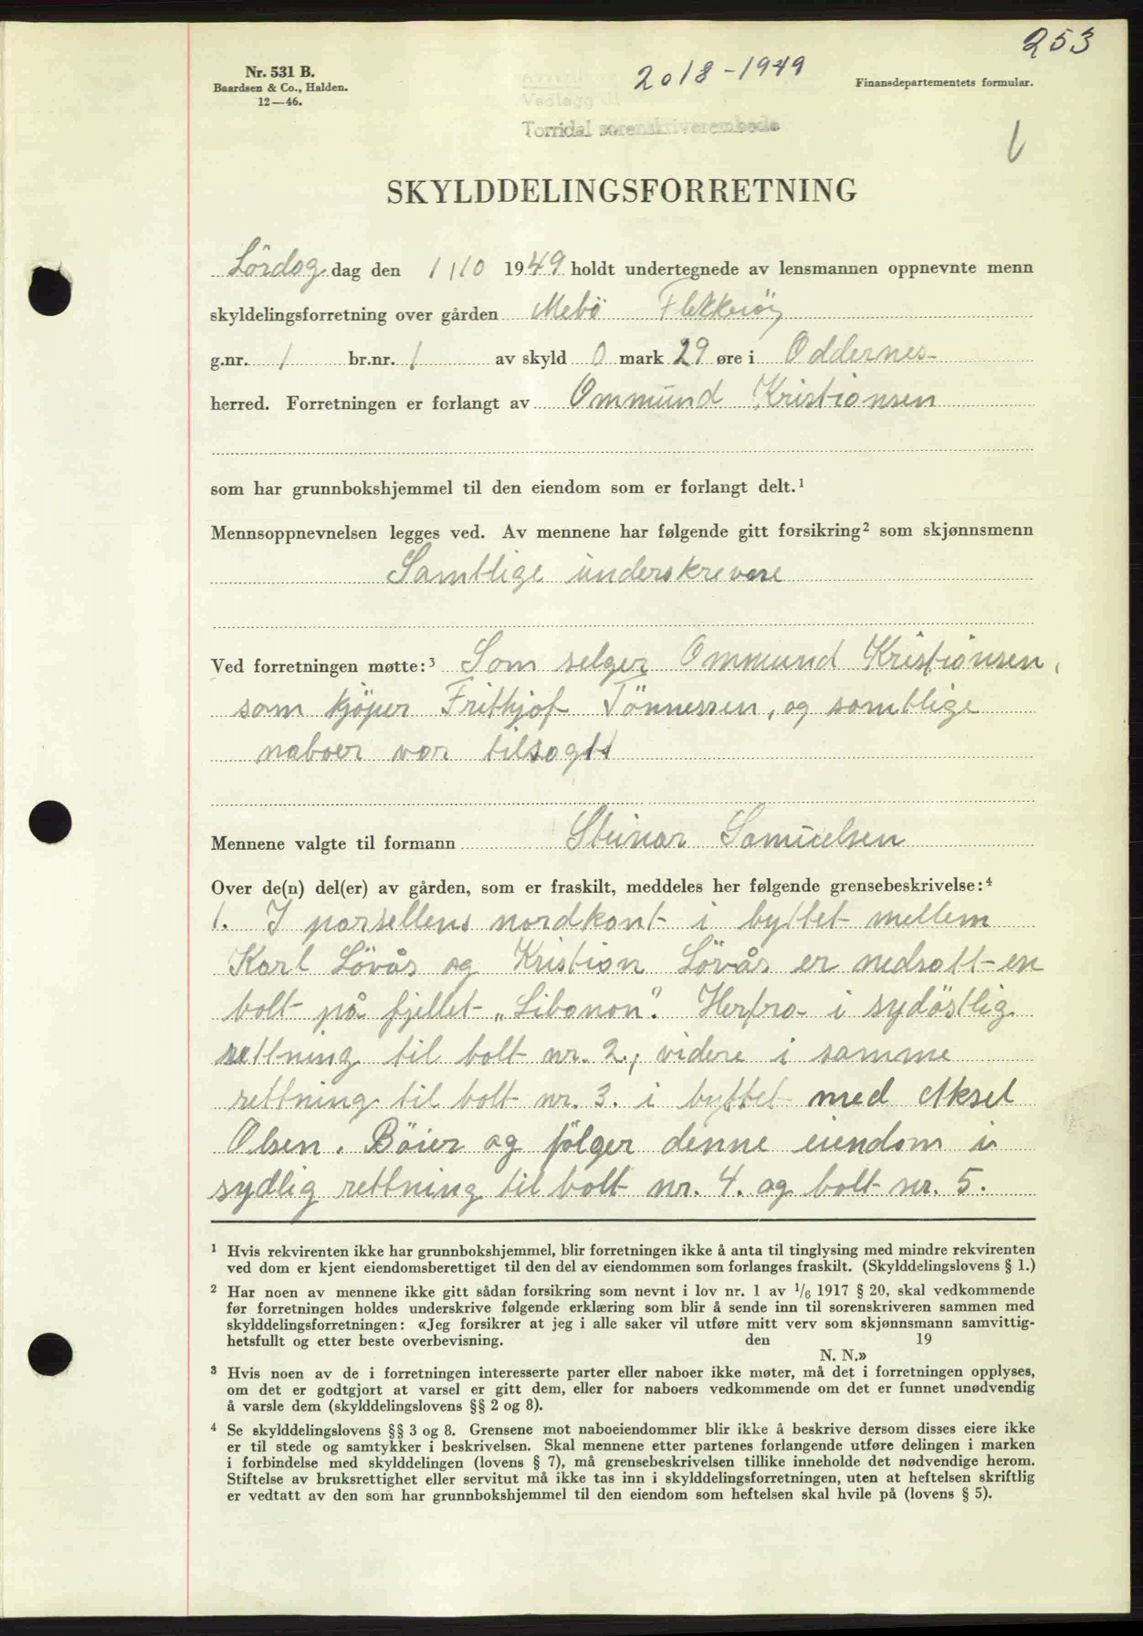 253
Nr. 531 B.
Baardsen & Co., Halden.
12—46.
2018-1949
Finansdepartementets formular.
Vedlegg til
Torridal sorenskriverembede
1
SKYLDDELINGSFORRETNING
Lördag dag den 1/10 1949 holdt undertegnede av lensmannen oppnevnte menn
skyldelingsforretning over gården Mebö Flekkeröy
g.nr. 1 br.nr. 1 av skyld 0 mark 29 øre i Oddernes
herred. Forretningen er forlangt av Ommund Kristiansen
som har grunnbokshjemmel til den eiendom som er forlangt delt.¹
Mennsoppnevnelsen legges ved. Av mennene har følgende gitt forsikring² som skjønnsmenn
Samtlige underskrevere
Ved forretningen møtte:³ Som selger Ommund Kristiansen,
som kjöper Frithjof Tönnessen, og samtlige
naboer var tilsagt
Mennene valgte til formann Steinar Samuelsen
Over de(n) del(er) av gården, som er fraskilt, meddeles her følgende grensebeskrivelse:⁴
1. I parsellens nordkant i byttet mellem
Karl Lövås og Kristian Lövås er nedsatt en
bolt på fjellet „Libanon". Herfra i sydöstlig
rettning til bolt nr. 2., videre i samme
rettning til bolt nr. 3. i byttet med Aksel
Olsen. Böier og fölger denne eiendom i
sydlig rettning til bolt nr. 4. og bolt nr. 5.
¹ Hvis rekvirenten ikke har grunnbokshjemmel, blir forretningen ikke å anta til tinglysing med mindre rekvirenten
ved dom er kjent eiendomsberettiget til den del av eiendommen som forlanges fraskilt. (Skylddelingslovens § 1.)
² Har noen av mennene ikke gitt sådan forsikring som nevnt i lov nr. 1 av 1/6 1917 § 20, skal vedkommende
før forretningen holdes underskrive følgende erklæring som blir å sende inn til sorenskriveren sammen med
skylddelingsforretningen: «Jeg forsikrer at jeg i alle saker vil utføre mitt verv som skjønnsmann samvittig-
hetsfullt og etter beste overbevisning. den 19
N. N.»
³ Hvis noen av de i forretningen interesserte parter eller naboer ikke møter, må det i forretningen opplyses,
om det er godtgjort at varsel er gitt dem, eller for naboers vedkommende om det er funnet unødvendig
å varsle dem (skylddelingslovens §§ 2 og 8).
⁴ Se skylddelingslovens §§ 3 og 8. Grensene mot naboeiendommer blir ikke å beskrive dersom disses eiere ikke
er til stede og samtykker i beskrivelsen. Skal mennene etter partenes forlangende utføre delingen i marken
i forbindelse med skylddelingen (lovens § 7), må grensebeskrivelsen tillike inneholde det nødvendige herom.
Stiftelse av bruksrettighet eller servitut må ikke tas inn i skylddelingsforretningen, uten at heftelsen skriftlig
er vedtatt av den som har grunnbokshjemmel til den eiendom som heftelsen skal hvile på (lovens § 5).